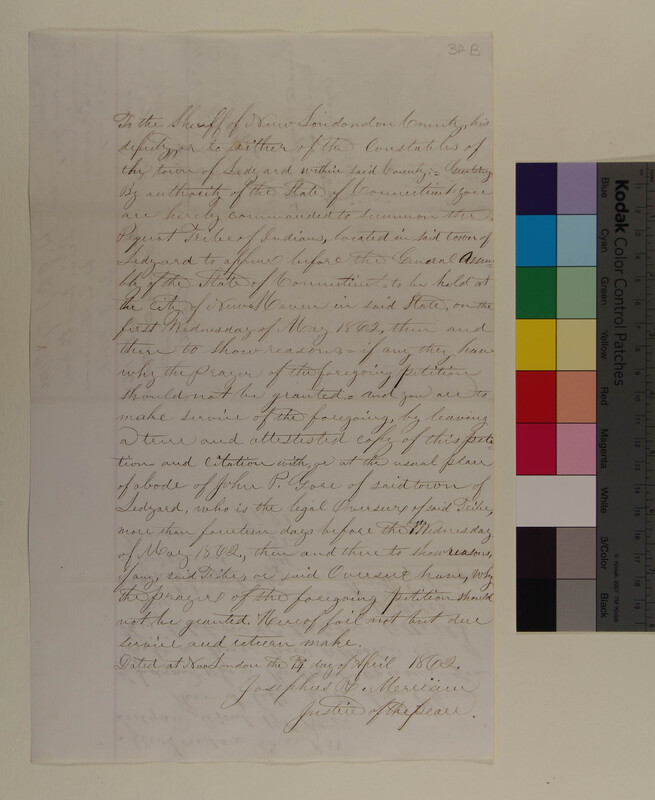 32 B
To the Sheriff of New Londondon County, his
deputy, or to either of the Constables of
the town of Ledyard within said County := Greeting
By authority of the State of Connecticut you
are hereby commanded to summon the
Pequot Tribe of Indians, located in said town of
Ledyard to appear before the General Assem-
bly of the State of Connecticut, to be held at
the City of New Haven in said State, on the
first Wednesday of May 1862, then and
there to show reasons = if any they have
why the prayer of the foregoing petition
should not be granted = and you are to
make service of the foregoing, by leaving
a true and attestested copy of this peti-
tion and citation with, or at the usual place
of abode of John P. Gore of said town of
Ledyard, who is the legal Overseer of said Tribe,
more than fourteen days before the Wednesday
of May 1862, then and there to show reasons,
if any, said Tribe, or said Overseer have, why
the prayer of the foregoing petition should
not be granted. Hereof fail not but due
service and return make.
Dated at New London the day of April 1862.
Josephus Merriam
Justice of the Peace.
Kodak Color Control Patches
Blue
Cyan
Green
Yellow
Red
Magenta
White
3/Color
Black